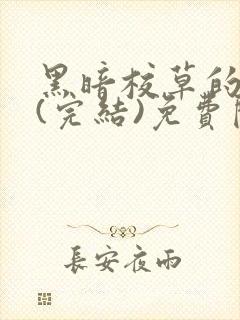 黑暗校草的
(完結)免費
長安夜雨